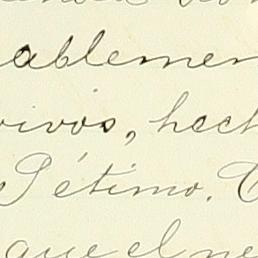 ablemen
vivos, hech
Sétimo.
que el ne